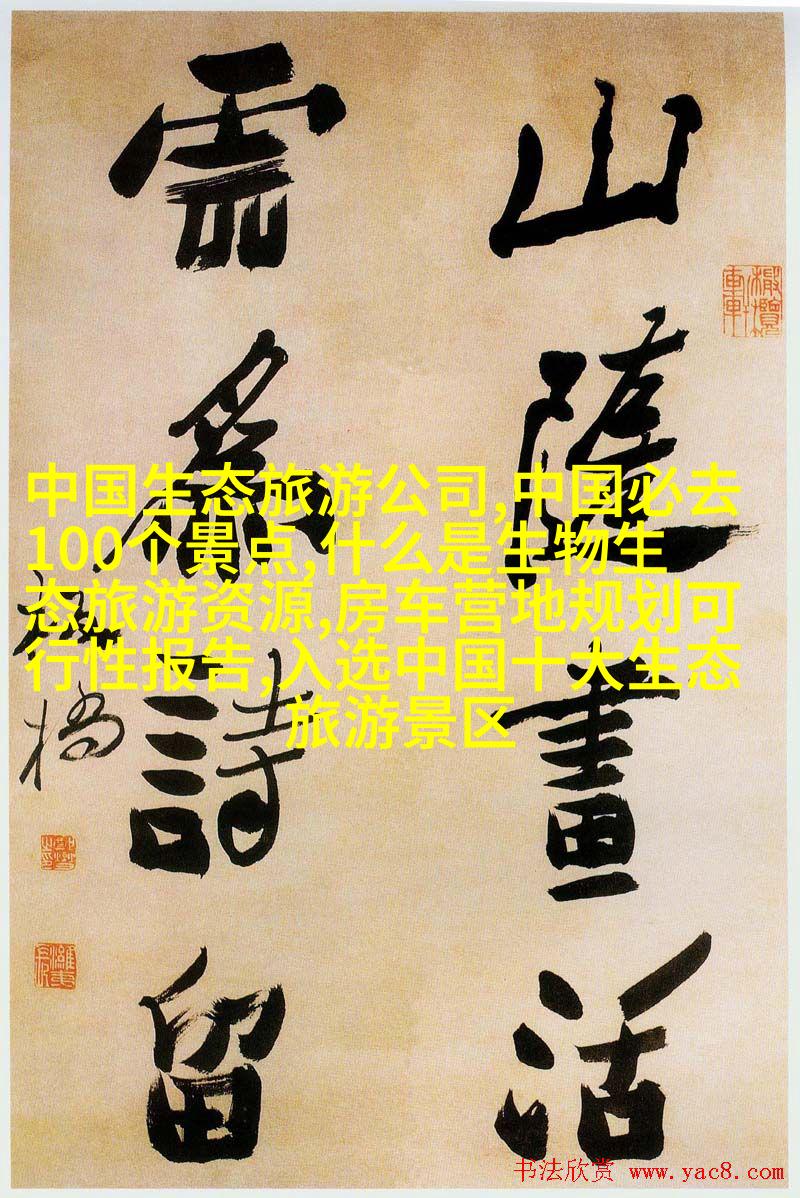 山隨畫活
雲為詩留
板橋
中国生态旅游公司,中国必去
100个景点,什么是生物生
态旅游资源,房车营地规划可
行性报告,入选中国十大生态
旅游景区
书法欣赏 www.yac8.com